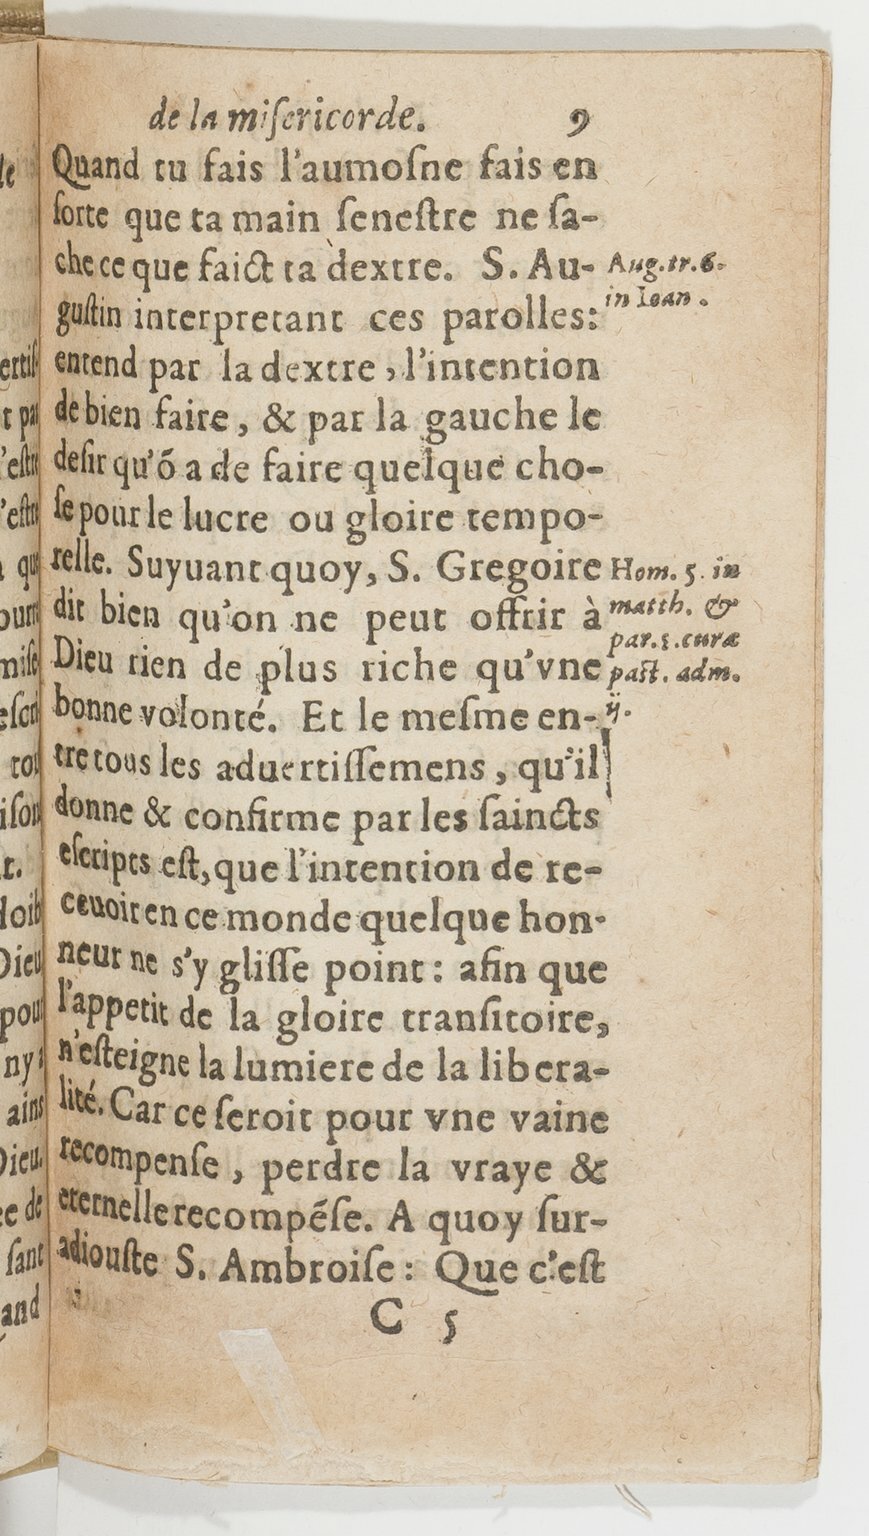 de la miſericorde. 9
Quand tu fais l'aumoſne fais en
ſorte que ta main ſeneſtre ne ſa-
che ce que faict ta dextre. S. Au-
guſtin interpretant ces parolles:
entend par la dextre, l'intention
de bien faire, & par la gauche le
deſir qu'õ a de faire quelque cho-
ſe pour le lucre ou gloire tempo-
relle. Suyuant quoy, S. Gregoire
dit bien qu'on ne peut offrir à
Dieu rien de plus riche qu'vne
bonne volonté. Et le meſme en-
tre tous les aduertiſſemens, qu'il
donne & confirme par les ſaincts
eſcripts eſt, que l'intention de re-
ceuoir en ce monde quelque hon-
neur ne s'y gliſſe point: afin que
l'appetit de la gloire tranſitoire,
n'eſteigne la lumiere de la libera-
lité. Car ce ſeroit pour vne vaine
recompenſe, perdre la vraye &
eternelle recompẽſe. A quoy ſur-
adiouſte S. Ambroiſe: Que c'eſt
C 5
Aug. tr. 6.
in Ioan.
Hom. 5. in
matth. &
par. 3. curæ
paſt. adm.